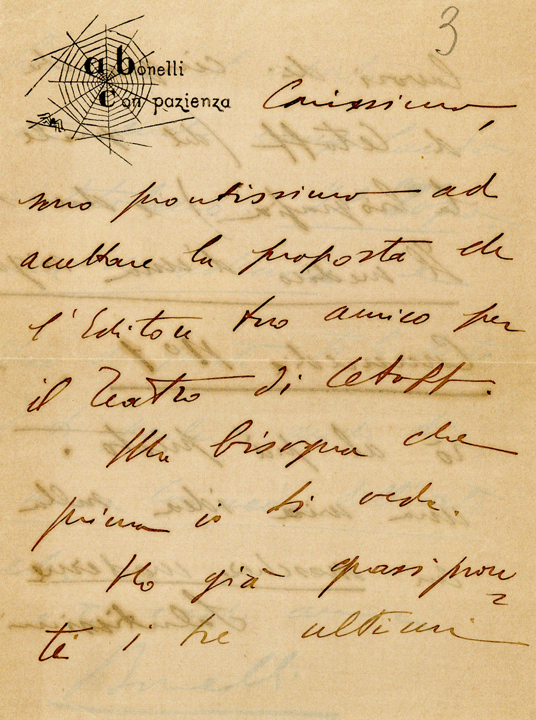 3
a bonelli
con pazienza
Carissimo,
sono prontissimo ad
accettare la proposta de
l'Editore tuo amico per
il Teatro di Cetoff.
Ma bisogna che
prima io ti veda.
Ho già quasi pron
ti i tre ultimi